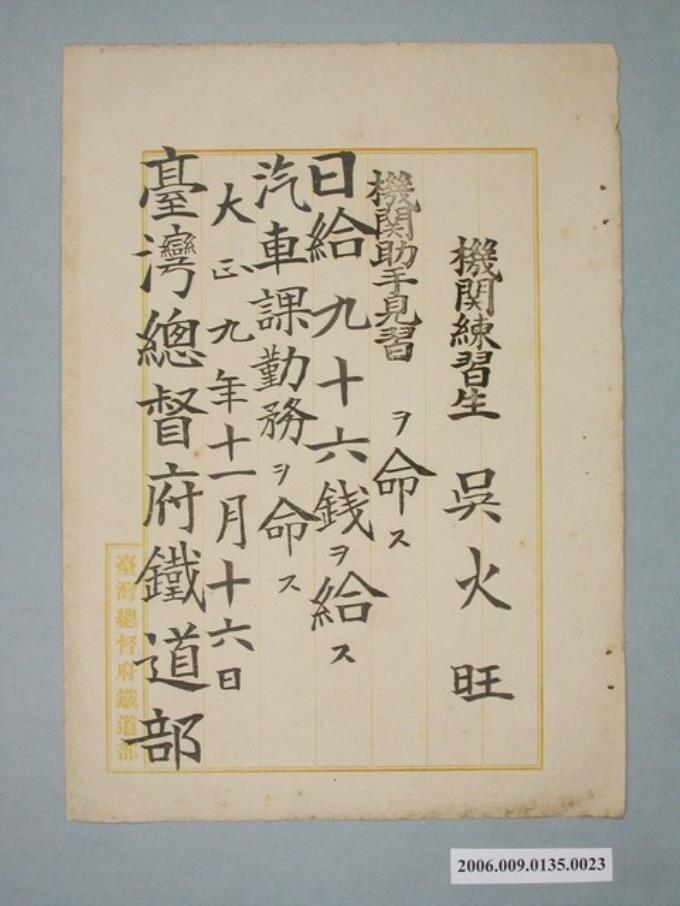 機関練習生 吳火旺
機関助手見習ヲ命ス
日給九十六銭ヲ給ス
汽車課勤務ヲ命ス
大正九年十一月十六日
臺灣總督府鐵道部
臺灣總督府鐵道部
2006.009.0135.0023